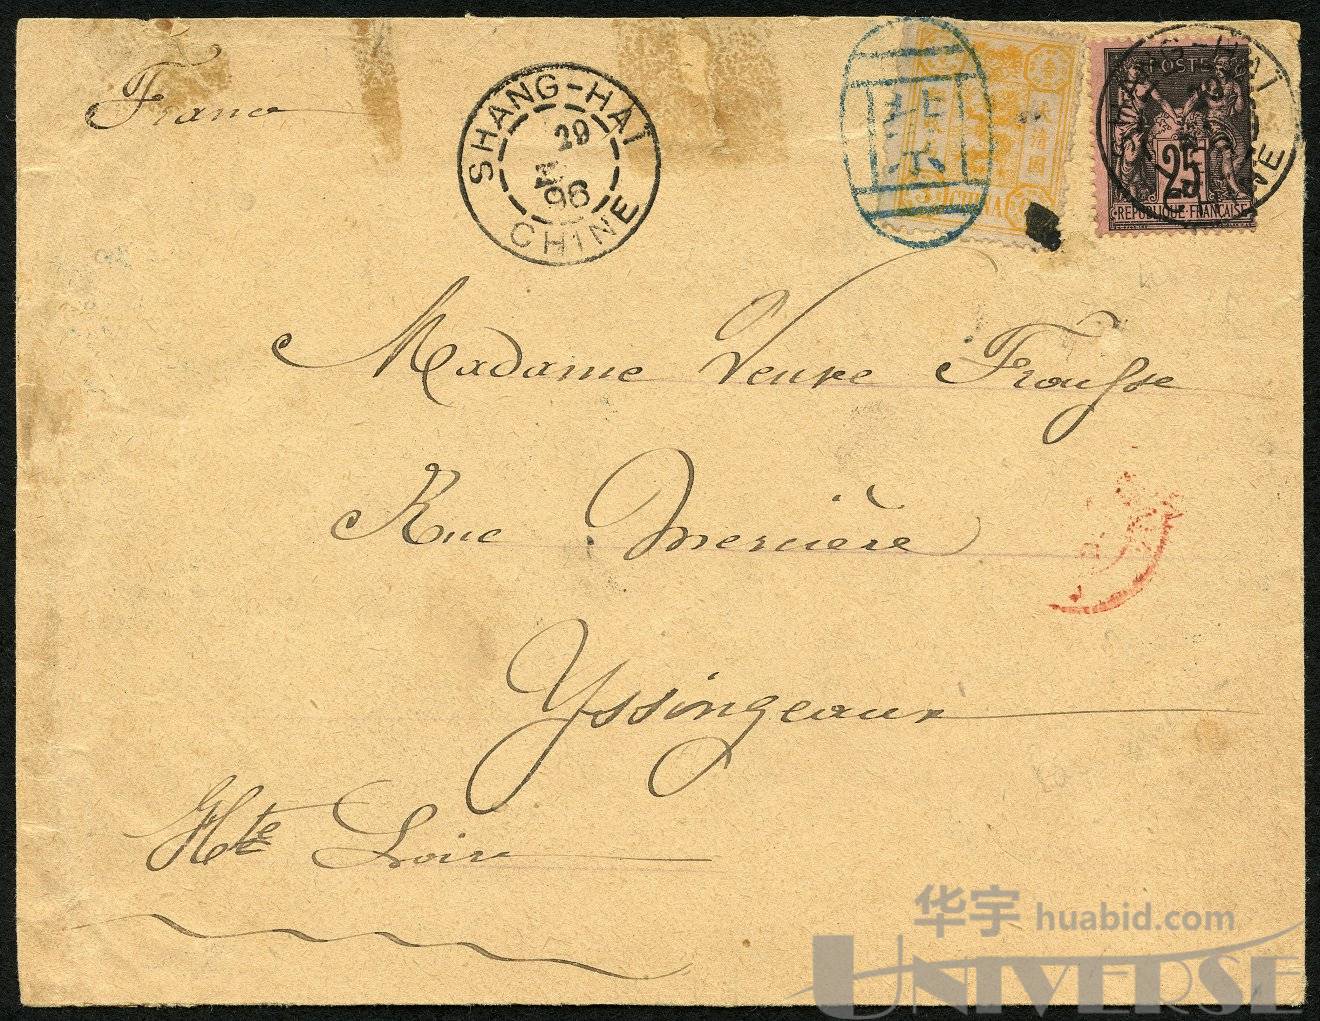 France
SHANG-HAI
29
96
CHINE
大清國
CHINA
SHANG-HAI
POSTE
25
REPUBLIQUE FRANÇAISE
Madame Veuve
Rue Mercière
Yssingeaux
Hte Loire
华宇 huabid.com
UNIVERSE